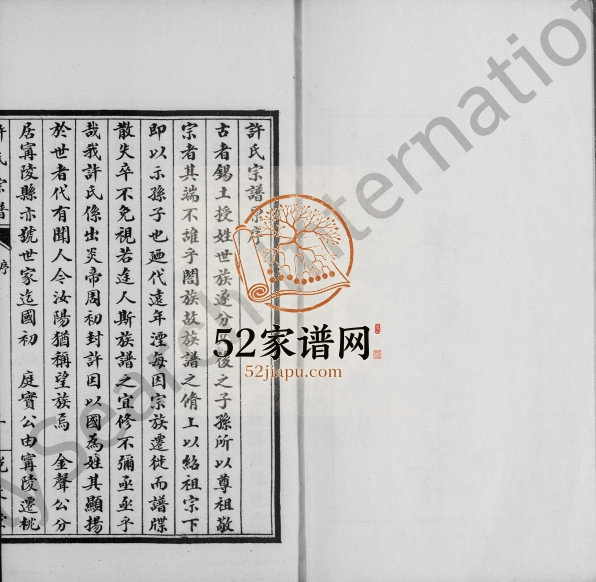 許氏宗譜原序
古者錫土授姓世族遂分後之子孫所以尊祖敬
宗者其端不離乎闔族故族譜之脩上以紹祖宗下
即以示孫子也廼代遠年湮每因宗族遷徙而譜牒
散失卒不免視若途人斯族譜之宜修不彌亟亟乎
哉我許氏係出炎帝周初封許因以國為姓其顯揚
於世者代有聞人今汝陽猶稱望族焉 金聲公分
居甯陵縣亦號世家迄國初 庭實公由甯陵遷桃
許氏宗譜 序 一
52家谱网
52jiapu.com
MySearch International